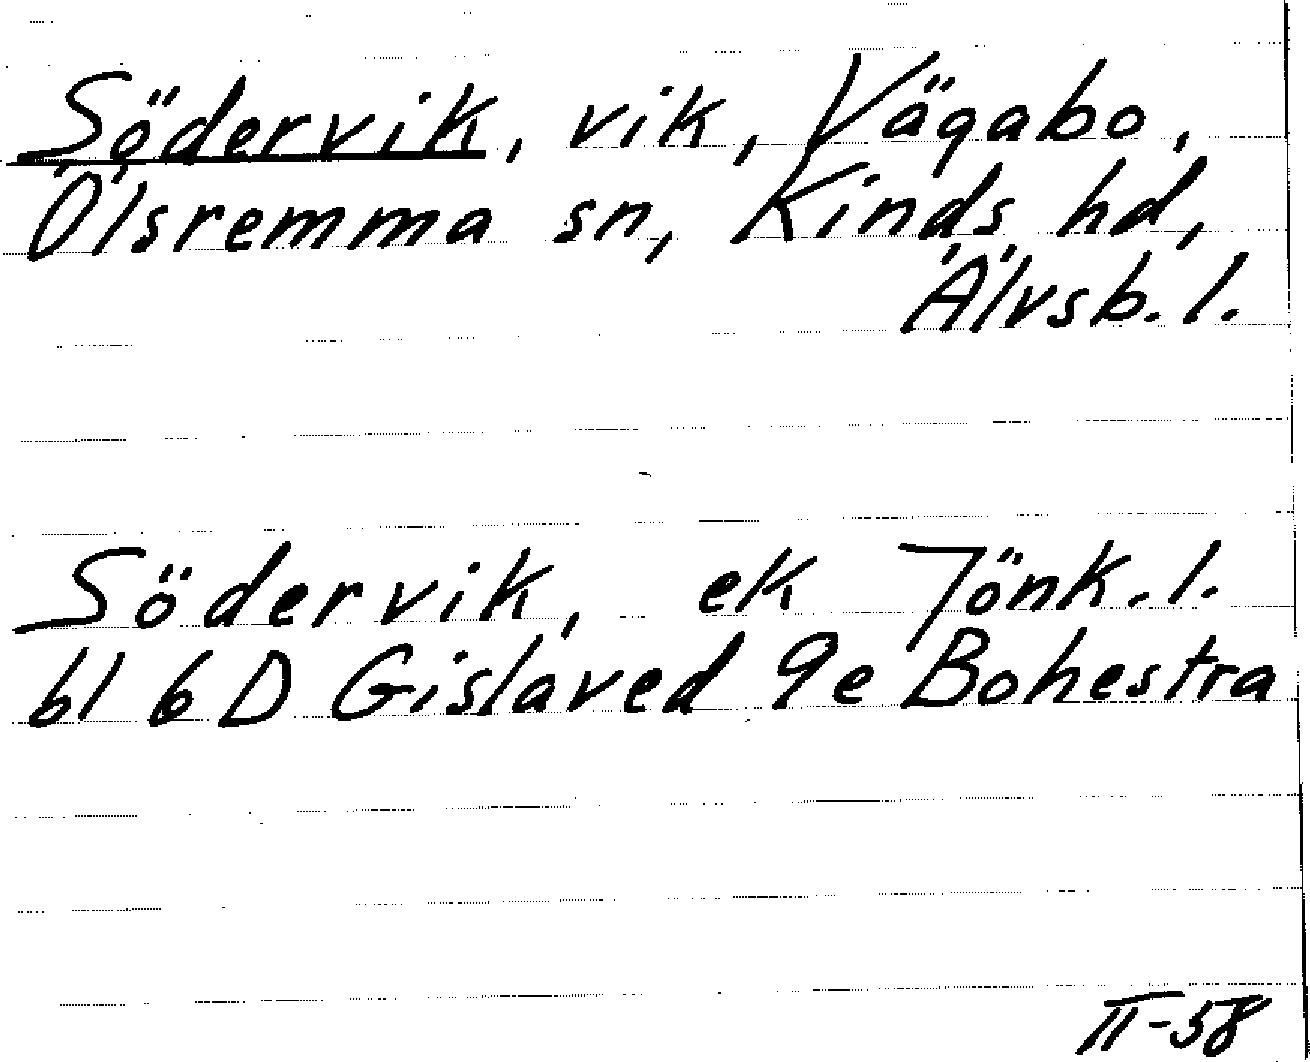 Södervik, vik, Vägabo,
Ölsremma sn, Kinds hd,
Älvsb. l.
Södervik, ek Jönk. l.
bl 6 D Gislaved 9e Bohestra
II-58